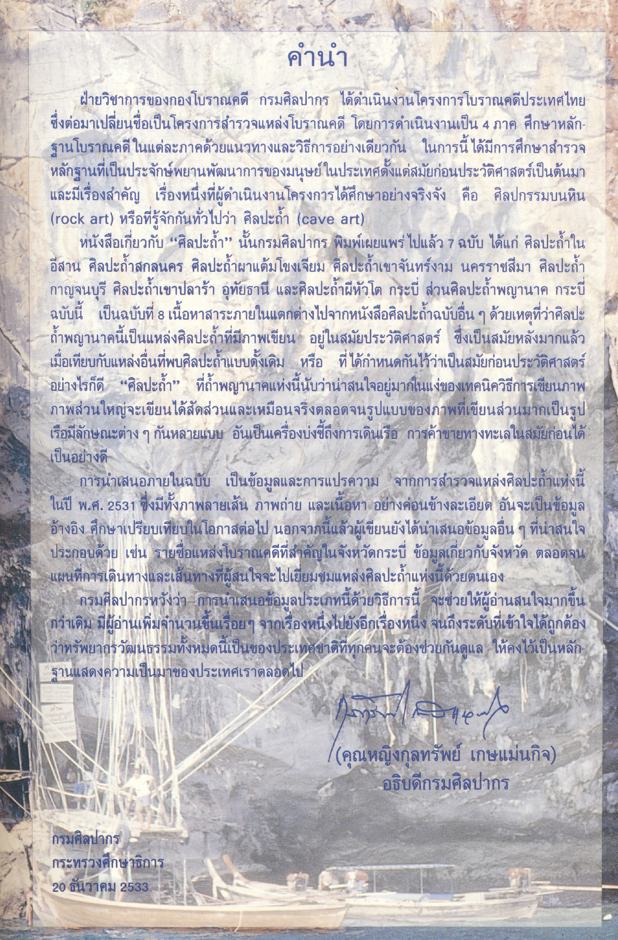 คำนำ
ฝ่ายวิชาการของกองโบราณคดี กรมศิลปากร ได้ดำเนินงานโครงการโบราณคดีประเทศไทย
ซึ่งต่อมาเปลี่ยนชื่อเป็นโครงการสำรวจแหล่งโบราณคดี โดยการดำเนินงานเป็น 4 ภาค ศึกษาหลัก-
ฐานโบราณคดีในแต่ละภาคด้วยแนวทางและวิธีการอย่างเดียวกัน ในการนี้ได้มีการศึกษาสำรวจ
หลักฐานที่เป็นประจักษ์พยานพัฒนาการของมนุษย์ในประเทศตั้งแต่สมัยก่อนประวัติศาสตร์เป็นต้นมา
และมีเรื่องสำคัญ เรื่องหนึ่งที่ผู้ดำเนินงานโครงการได้ศึกษาอย่างจริงจัง คือ ศิลปกรรมบนหิน
(rock art) หรือที่รู้จักกันทั่วไปว่า ศิลปะถ้ำ (cave art)
หนังสือเกี่ยวกับ “ศิลปะถ้ำ” นั้นกรมศิลปากร พิมพ์เผยแพร่ไปแล้ว 7 ฉบับ ได้แก่ ศิลปะถ้ำใน
อีสาน ศิลปะถ้ำสกลนคร ศิลปะถ้ำผาแต้มโขงเจียม ศิลปะถ้ำเขาจันทร์งาม นครราชสีมา ศิลปะถ้ำ
กาญจนบุรี ศิลปะถ้ำเขาปลาร้า อุทัยธานี และศิลปะถ้ำผีหัวโต กระบี่ ส่วนศิลปะถ้ำพญานาค กระบี่
ฉบับนี้ เป็นฉบับที่ 8 เนื้อหาสาระภายในแตกต่างไปจากหนังสือศิลปะถ้ำฉบับอื่น ๆ ด้วยเหตุที่ว่าศิลปะ
ถ้ำพญานาคนี้เป็นแหล่งศิลปะถ้ำที่มีภาพเขียน อยู่ในสมัยประวัติศาสตร์ ซึ่งเป็นสมัยหลังมากแล้ว
เมื่อเทียบกับแหล่งอื่นที่พบศิลปะถ้ำแบบดั้งเดิม หรือ ที่ได้กำหนดกันไว้ว่าเป็นสมัยก่อนประวัติศาสตร์
อย่างไรก็ดี “ศิลปะถ้ำ” ที่ถ้ำพญานาคแห่งนี้นับว่าน่าสนใจอยู่มากในแง่ของเทคนิควิธีการเขียนภาพ
ภาพส่วนใหญ่จะเขียนได้สัดส่วนและเหมือนจริงตลอดจนรูปแบบของภาพที่เขียนส่วนมากเป็นรูป
เรือมีลักษณะต่าง ๆ กันหลายแบบ อันเป็นเครื่องบ่งชี้ถึงการเดินเรือ การค้าขายทางทะเลในสมัยก่อนได้
เป็นอย่างดี
การนำเสนอภายในฉบับ เป็นข้อมูลและการแปรความ จากการสำรวจแหล่งศิลปะถ้ำแห่งนี้
ในปี พ.ศ. 2531 ซึ่งมีทั้งภาพลายเส้น ภาพถ่าย และเนื้อหา อย่างค่อนข้างละเอียด อันจะเป็นข้อมูล
อ้างอิง ศึกษาเปรียบเทียบในโอกาสต่อไป นอกจากนี้แล้วผู้เขียนยังได้นำเสนอข้อมูลอื่น ๆ ที่น่าสนใจ
ประกอบด้วย เช่น รายชื่อแหล่งโบราณคดีที่สำคัญในจังหวัดกระบี่ ข้อมูลเกี่ยวกับจังหวัด ตลอดจน
แผนที่การเดินทางและเส้นทางที่ผู้สนใจจะไปเยี่ยมชมแหล่งศิลปะถ้ำแห่งนี้ด้วยตนเอง
กรมศิลปากรหวังว่า การนำเสนอข้อมูลประเภทนี้ด้วยวิธีการนี้ จะช่วยให้ผู้อ่านสนใจมากขึ้น
กว่าเดิม มีผู้อ่านเพิ่มจำนวนขึ้นเรื่อย ๆ จากเรื่องหนึ่งไปยังอีกเรื่องหนึ่ง จนถึงระดับที่เข้าใจได้ถูกต้อง
ว่าทรัพยากรวัฒนธรรมทั้งหมดนี้เป็นของประเทศชาติที่ทุกคนจะต้องช่วยกันดูแล ให้คงไว้เป็นหลัก-
ฐานแสดงความเป็นมาของประเทศเราตลอดไป
(คุณหญิงกุลทรัพย์ เกษแม่นกิจ)
อธิบดีกรมศิลปากร
กรมศิลปากร
กระทรวงศึกษาธิการ
20 ธันวาคม 2533